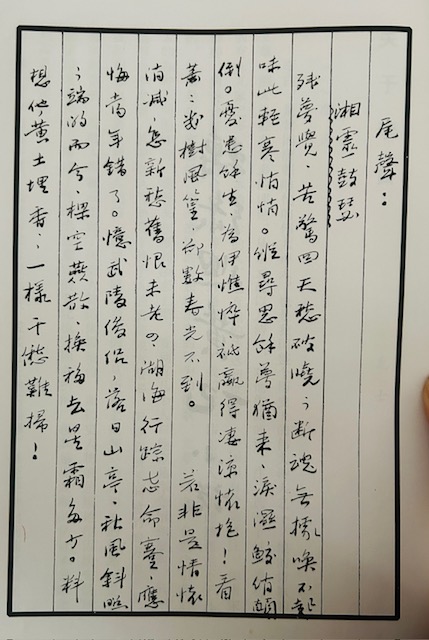 尾聲：
湘靈鼓瑟
殘夢覺、苦驚四天愁破曉；斷魂無據喚不起
味此輕寒悄悄。縱尋思餘夢猶來、淚濕鮫綃顛
倒。憂患餘生、為伊憔悴、祇贏得淒涼懷抱！看
蕭蕭幾樹風篁、卻數春光不到。 若非是情懷
消減、怎新愁舊恨未老。湖海行踪忘命蹇、應
悔當年錯了。憶武陵俊侶、落日山亭、秋風斜照
；端的而今、樑空燕散、換稿去是霜多少。料
想他黃土埋香、一樣千愁難掃！